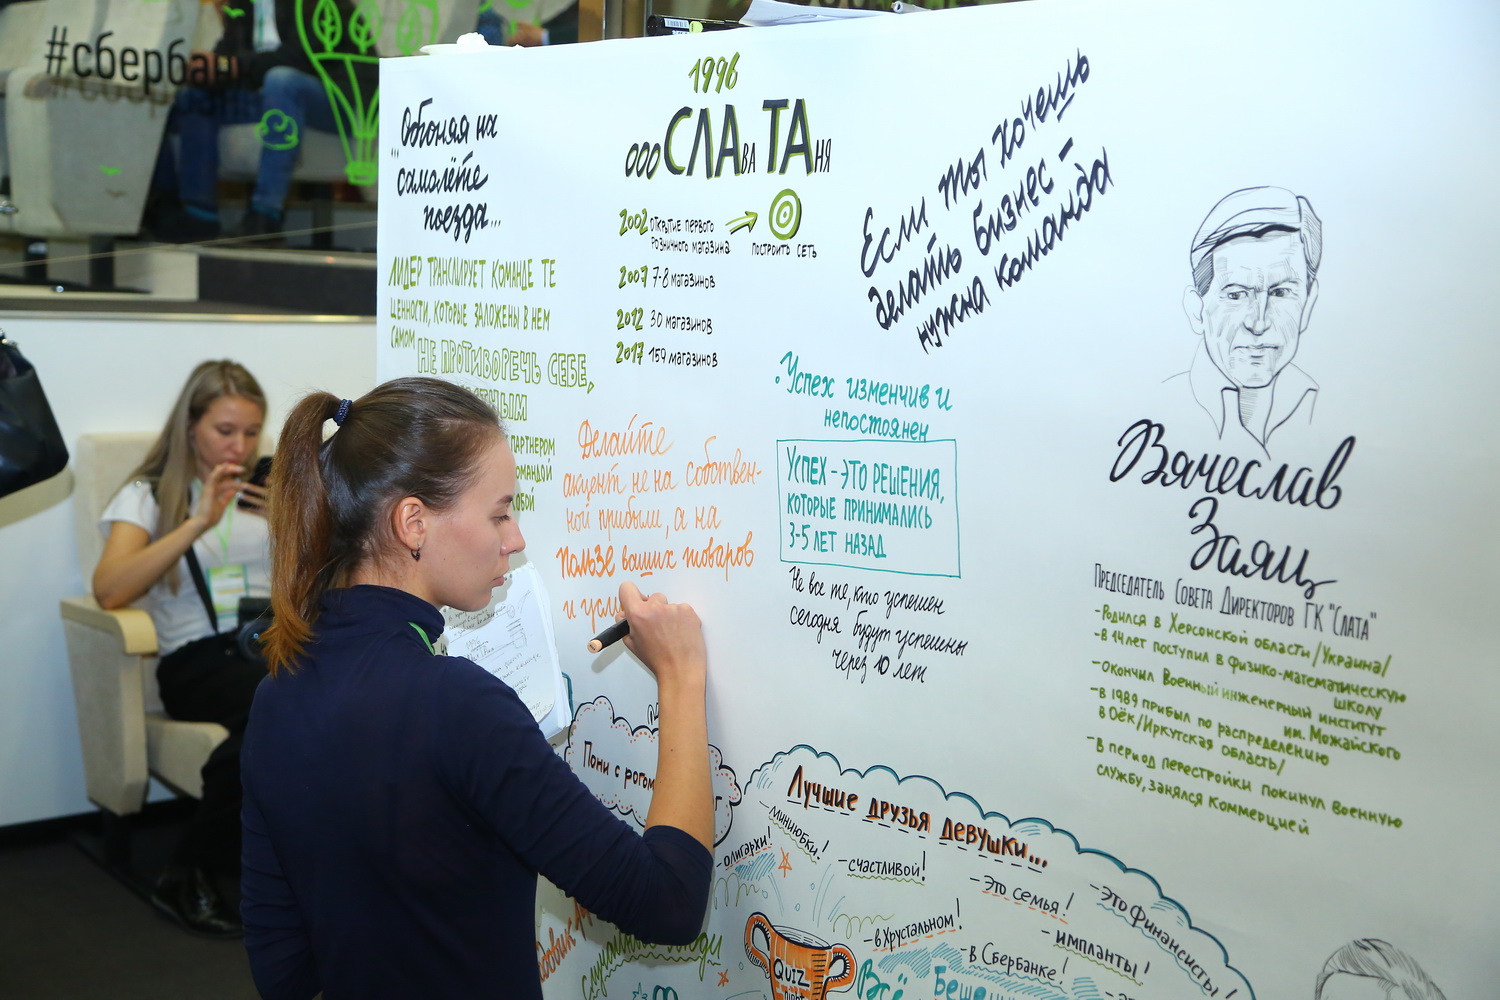 #сбербанк
...Обгоняя их
самолёте
поезда...
ЛИДЕР ТРАНСЛИРУЕТ КОМАНДЕ ТЕ
ЦЕННОСТИ, КОТОРЫЕ ЗАЛОЖЕНЫ В НЕМ
САМОМ
НЕ ПРОТИВОРЕЧЬ СЕБЕ,
ПАРТНЕРОМ
1996
ООО СЛАВА ТАНЯ
2002 ОТКРЫТИЕ ПЕРВОГО
РОЗНИЧНОГО МАГАЗИНА
ПОСТРОИТЬ СЕТЬ
2007 7-8 МАГАЗИНОВ
2012 30 МАГАЗИНОВ
2017 159 МАГАЗИНОВ
Делайте
акцент не на собствен-
ной прибыли, а на
пользе ваших товаров
и услу
Если ты хочешь
делать бизнес -
нужна команда
Успех изменчив и
непостоянен
УСПЕХ - ЭТО РЕШЕНИЯ,
КОТОРЫЕ ПРИНИМАЛИСЬ
3-5 ЛЕТ НАЗАД
Не все те, кто успешен
сегодня будут успешны
через 10 лет
Вячеслав
Заяц
ПРЕДСЕДАТЕЛЬ СОВЕТА ДИРЕКТОРОВ ГК "СЛАТА"
-РОДИЛСЯ В ХЕРСОНСКОЙ ОБЛАСТИ/УКРАИНА/
-В 14 ЛЕТ ПОСТУПИЛ В ФИЗИКО-МАТЕМАТИЧЕСКУЮ
ШКОЛУ
-ОКОНЧИЛ ВОЕННЫЙ ИНЖЕНЕРНЫЙ ИНСТИТУТ
ИМ. МОЖАЙСКОГО
-В 1989 ПРИБЫЛ ПО РАСПРЕДЕЛЕНИЮ
В ОЁК/ИРКУТСКАЯ ОБЛАСТЬ/
-В ПЕРИОД ПЕРЕСТРОЙКИ ПОКИНУЛ ВОЕННУЮ
СЛУЖБУ, ЗАНЯЛСЯ КОММЕРЦИЕЙ
Пони с рогом
Лучшие друзья девушки...
-олигархи!
-миниюбки!
-счастливой!
-это семья!
-это финансисты!
-в Хрустальном!
-импланты!
-в Сбербанке!
QUIZ
Всё